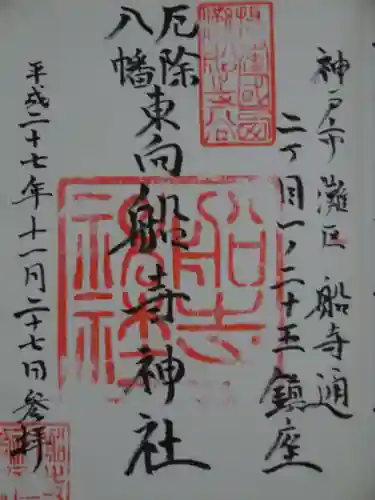 神戸市灘区船寺通
二丁目一ノ二十三鎮座
厄除
八幡
東向船寺神社
平成二十七年十一月二十七日参拝
船寺神社